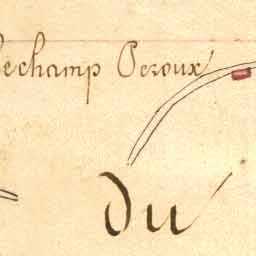 echamp Peroux
du